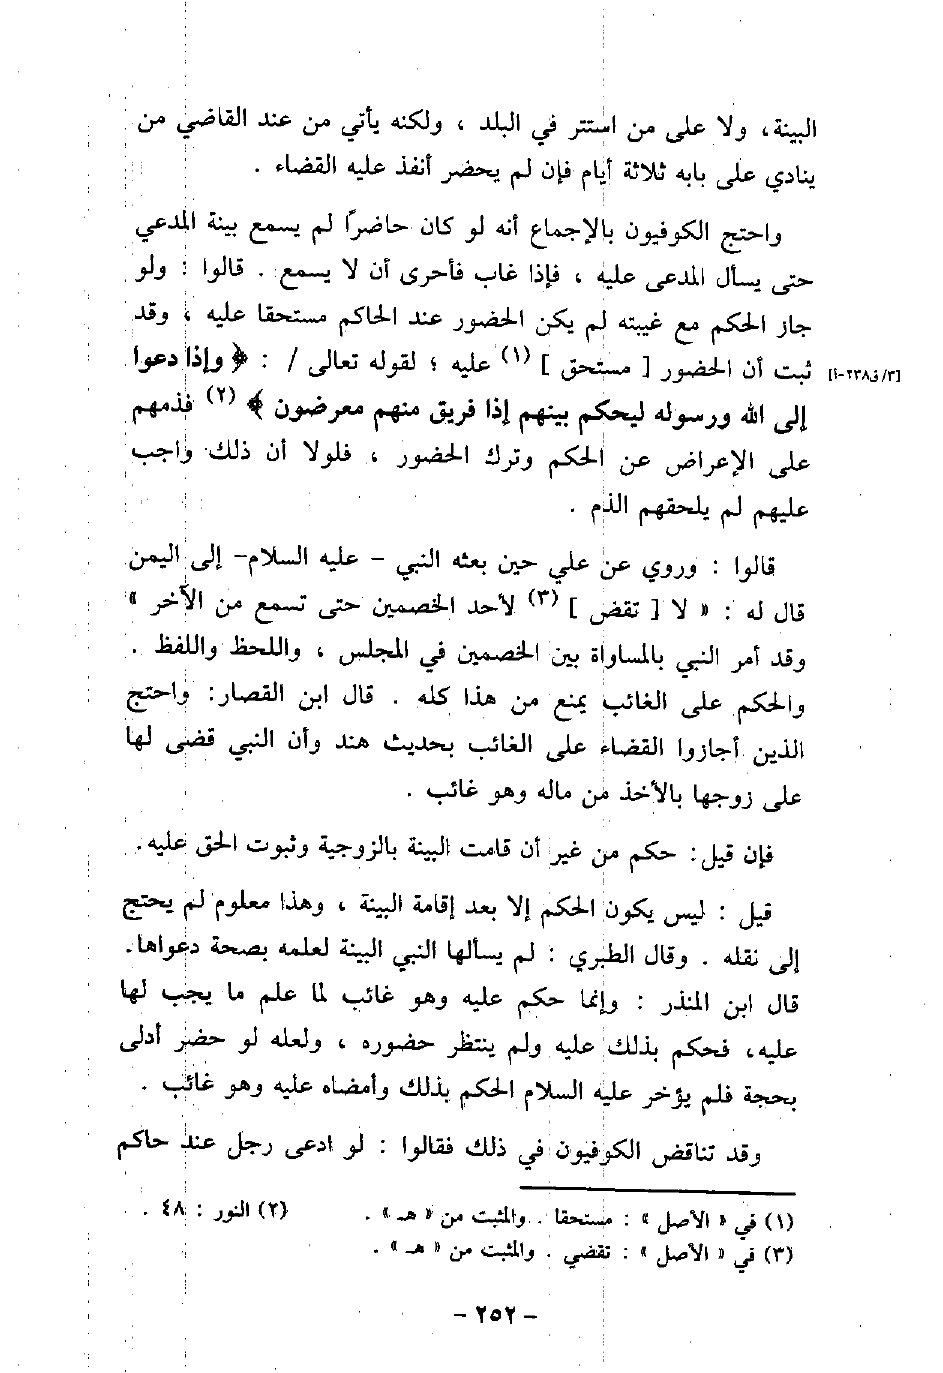 البينة، ولا على من استتر في البلد ، ولكنه يأتي من عند القاضي من
ينادي على بابه ثلاثة أيام فإن لم يحضر أنفذ عليه القضاء .
واحتج الكوفيون بالإجماع أنه لو كان حاضرًا لم يسمع بينة المدعي
حتى يسأل المدعى عليه ، فإذا غاب فأحرى أن لا يسمع . قالوا : ولو
جاز الحكم مع غيبته لم يكن الحضور عند الحاكم مستحقا عليه ، وقد
ثبت أن الحضور [ مستحق ] (١) عليه ؛ لقوله تعالى / : ﴿ وإذا دعوا [٣/ق٢٣٨-أ]
إلى الله ورسوله ليحكم بينهم إذا فريق منهم معرضون ﴾ (٢) فذمهم
على الإعراض عن الحكم وترك الحضور ، فلولا أن ذلك واجب
عليهم لم يلحقهم الذم .
قالوا : وروي عن علي حين بعثه النبي - عليه السلام- إلى اليمن
قال له : « لا [ تقض ] (٣) لأحد الخصمين حتى تسمع من الآخر »
وقد أمر النبي بالمساواة بين الخصمين في المجلس ، واللحظ واللفظ .
والحكم على الغائب يمنع من هذا كله . قال ابن القصار: واحتج
الذين أجازوا القضاء على الغائب بحديث هند وأن النبي قضى لها
على زوجها بالأخذ من ماله وهو غائب .
فإن قيل: حكم من غير أن قامت البينة بالزوجية وثبوت الحق عليه.
قيل : ليس يكون الحكم إلا بعد إقامة البينة ، وهذا معلوم لم يحتج
إلى نقله . وقال الطبري : لم يسألها النبي البينة لعلمه بصحة دعواها.
قال ابن المنذر : وإنما حكم عليه وهو غائب لما علم ما يجب لها
عليه، فحكم بذلك عليه ولم ينتظر حضوره ، ولعله لو حضر أدلى
بحجة فلم يؤخر عليه السلام الحكم بذلك وأمضاه عليه وهو غائب .
وقد تناقض الكوفيون في ذلك فقالوا : لو ادعى رجل عند حاكم
(١) في « الأصل » : مستحقا . والمثبت من « هـ » . (٢) النور : ٤٨ .
(٣) في « الأصل » : تقضي . والمثبت من « هـ » .
- ٢٥٢ -